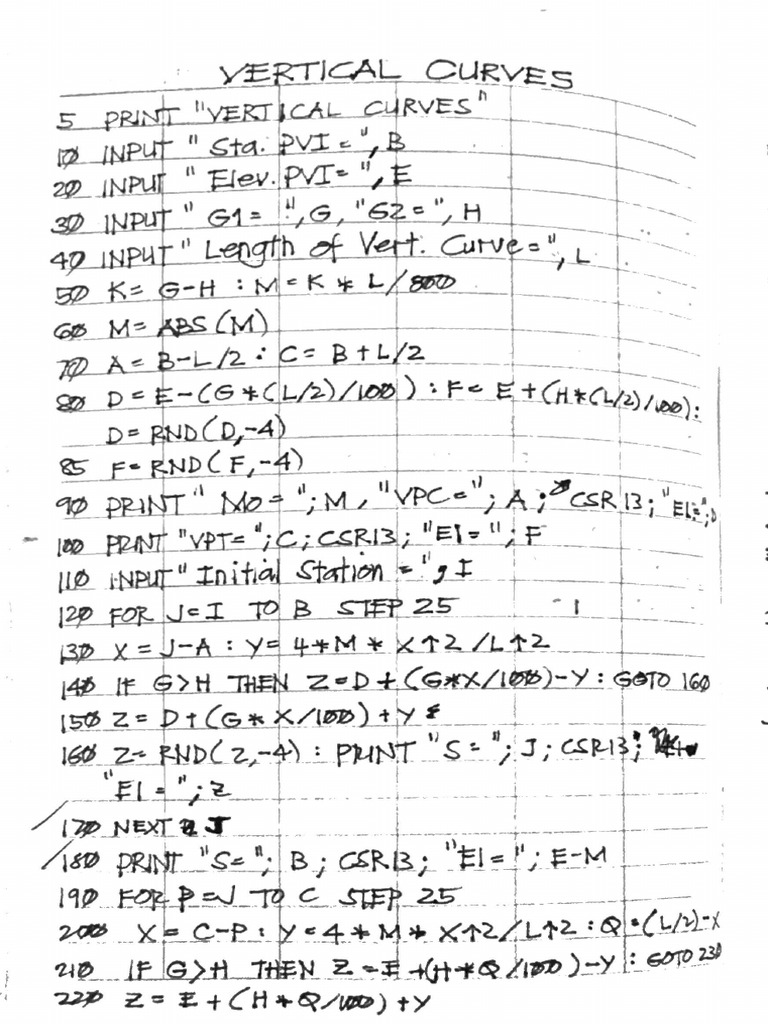 VERTICAL CURVES
5 PRINT "VERTICAL CURVES"
10 INPUT "Sta. PVI=", B
20 INPUT "Elev. PVI=", E
30 INPUT "G1= ", G, "G2=", H
40 INPUT "Length of Vert. Curve=", L
50 K= G-H : M=K * L/800
60 M=ABS(M)
70 A=B-L/2 : C=B+L/2
80 D=E-(G*(L/2)/100) : F=E+(H*(L/2)/100):
D=RND(D,-4)
85 F=RND(F,-4)
90 PRINT "Mo="; M, "VPC="; A; CSR13; "El="; D
100 PRINT "VPT="; C; CSR13; "El="; F
110 INPUT "Initial Station =", I
120 FOR J=I TO B STEP 25
130 X=J-A : Y=4*M*X↑2/L↑2
140 IF G>H THEN Z=D+(G*X/100)-Y : GOTO 160
150 Z=D+(G*X/100)+Y
160 Z=RND(Z,-4) : PRINT "S="; J; CSR13;
"El="; Z
170 NEXT J
180 PRINT "S="; B; CSR13; "El="; E-M
190 FOR P=J TO C STEP 25
200 X=C-P : Y=4*M*X↑2/L↑2 : Q=(L/2)-X
210 IF G>H THEN Z=E+(H*Q/100)-Y : GOTO 230
220 Z=E+(H*Q/100)+Y